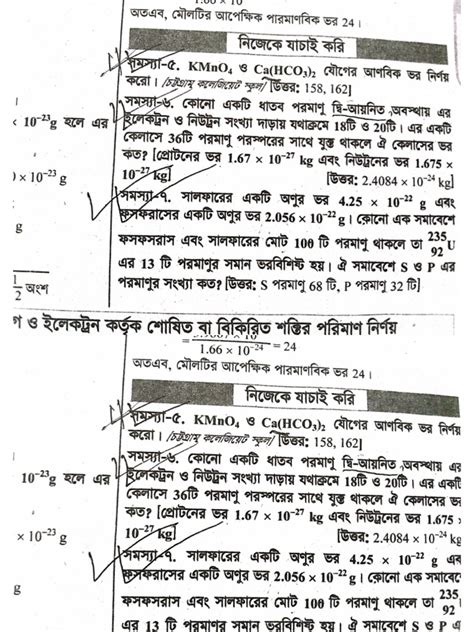 1.66 × 10
অতএব, মৌলটির আপেক্ষিক পারমাণবিক ভর 24।
নিজেকে যাচাই করি
সমস্যা-৫. KMnO₄ ও Ca(HCO₃)₂ যৌগের আণবিক ভর নির্ণয়
করো। [চট্টগ্রাম কলেজিয়েট স্কুল] [উত্তর: 158, 162]
সমস্যা-৬. কোনো একটি ধাতব পরমাণু দ্বি-আয়নিত অবস্থায় এর
< 10⁻²³g হলে এর
ইলেকট্রন ও নিউট্রন সংখ্যা দাড়ায় যথাক্রমে 18টি ও 20টি। এর একটি
কেলাসে 36টি পরমাণু পরস্পরের সাথে যুক্ত থাকলে ঐ কেলাসের ভর
কত? [প্রোটনের ভর 1.67 × 10⁻²⁷ kg এবং নিউট্রনের ভর 1.675 ×
) × 10⁻²³ g
10⁻²⁷ kg] [উত্তর: 2.4084 × 10⁻²⁴ kg]
সমস্যা-৭. সালফারের একটি অণুর ভর 4.25 × 10⁻²² g এবং
g
ফসফরাসের একটি অণুর ভর 2.056 × 10⁻²² g। কোনো এক সমাবেশে
ফসফরাস এবং সালফারের মোট 100 টি পরমাণু থাকলে তা ²³⁵₉₂U
এর 13 টি পরমাণুর সমান ভরবিশিষ্ট হয়। ঐ সমাবেশে S ও P এর
1/2 অংশ
পরমাণুর সংখ্যা কত? [উত্তর: S পরমাণু 68 টি, P পরমাণু 32 টি]
ও ইলেকট্রন কর্তৃক শোষিত বা বিকিরিত শক্তির পরিমাণ নির্ণয়
= 1.66 × 10⁻²⁴ = 24
অতএব, মৌলটির আপেক্ষিক পারমাণবিক ভর 24।
নিজেকে যাচাই করি
সমস্যা-৫. KMnO₄ ও Ca(HCO₃)₂ যৌগের আণবিক ভর নির্ণয়
করো। [চট্টগ্রাম কলেজিয়েট স্কুল] [উত্তর: 158, 162]
সমস্যা-৬. কোনো একটি ধাতব পরমাণু দ্বি-আয়নিত অবস্থায় এর
10⁻²³g হলে এর
ইলেকট্রন ও নিউট্রন সংখ্যা দাড়ায় যথাক্রমে 18টি ও 20টি। এর একটি
কেলাসে 36টি পরমাণু পরস্পরের সাথে যুক্ত থাকলে ঐ কেলাসের ভর
কত? [প্রোটনের ভর 1.67 × 10⁻²⁷ kg এবং নিউট্রনের ভর 1.675 ×
× 10⁻²³ g
10⁻²⁷ kg] [উত্তর: 2.4084 × 10⁻²⁴ kg
সমস্যা-৭. সালফারের একটি অণুর ভর 4.25 × 10⁻²² g এবং
g
ফসফরাসের একটি অণুর ভর 2.056 × 10⁻²² g। কোনো এক সমাবেশে
ফসফরাস এবং সালফারের মোট 100 টি পরমাণু থাকলে তা ²³⁵₉₂
এর 13 টি পরমাণুর সমান ভরবিশিষ্ট হয়। ঐ সমাবেশে S ও P এর